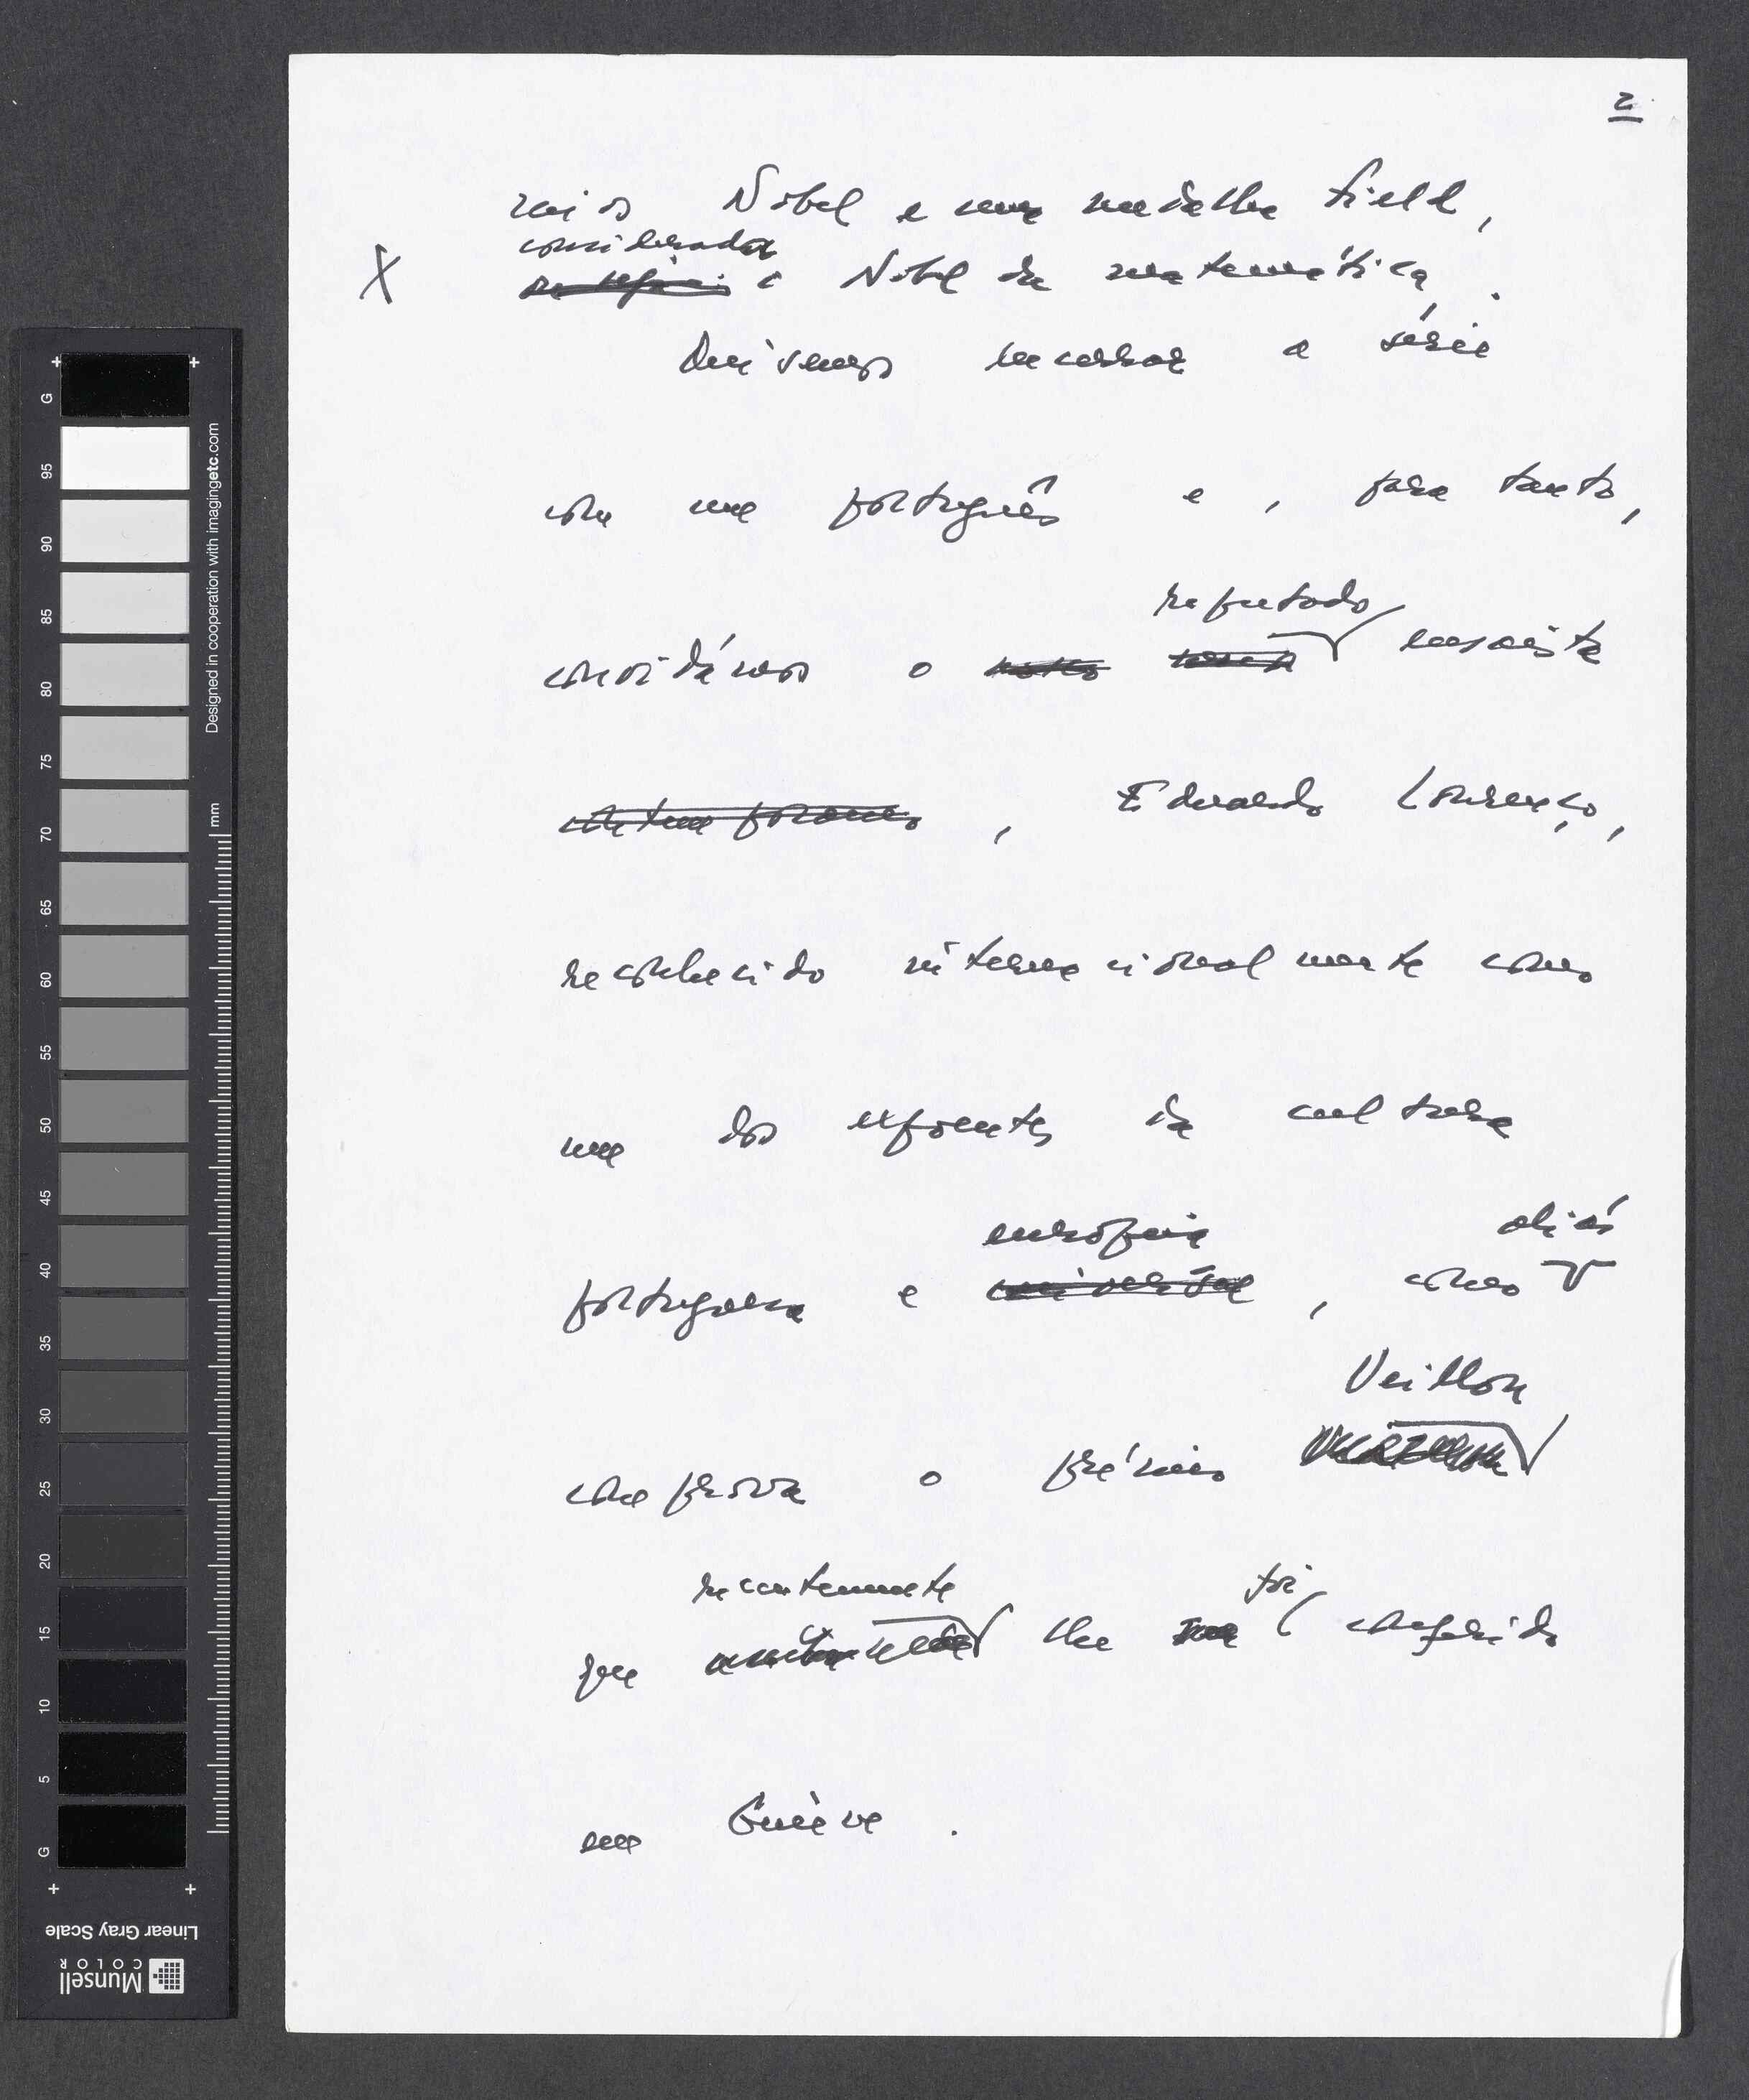 2
mios Nobel e uma medalha Field,
considerada
o Nobel da matemática.
X
Quisemos encerrar a série
com um português e, para tanto,
reputado
convidámos o ensaísta
, Eduardo Lourenço,
reconhecido internacionalmente como
um dos expoentes da cultura
europeia aliás
portuguesa e universal, como
Veillon
comprova o prémio
recentemente foi
que lhe conferido
em Genève.
G
95
90
85
80
75
70
65
60
55
50
45
40
35
30
25
20
15
10
5
G
Designed in cooperation with imagingetc.com
mm
Linear Gray Scale
Munsell
COLOR